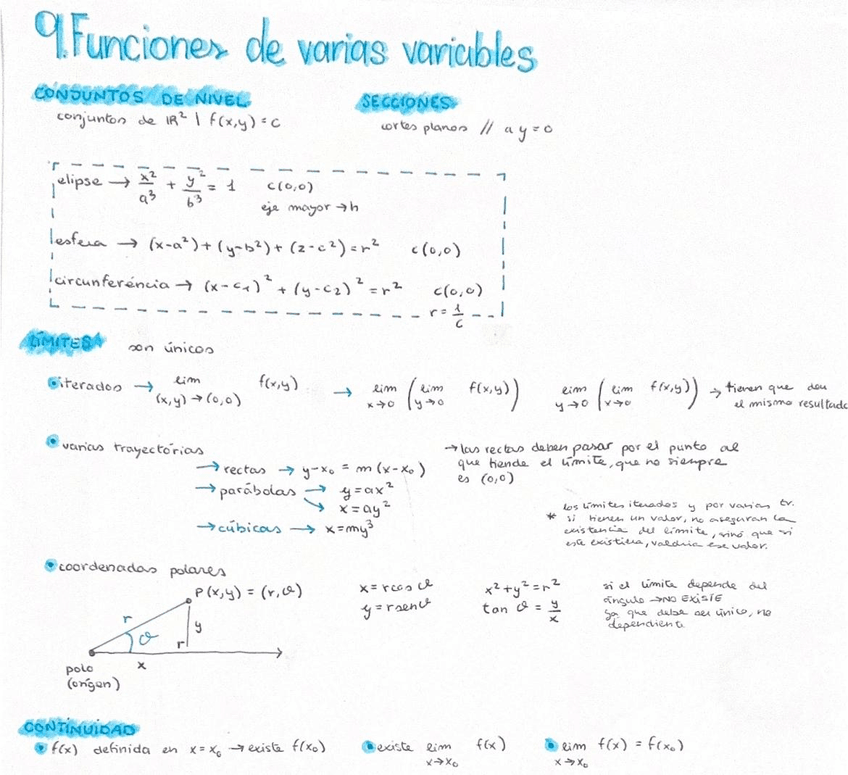 9. Funciones de varias variables
CONJUNTOS DE NIVEL
SECCIONES
conjuntos de IR² | f(x,y) = c
cortes planos // a y = 0
elipse → x²/a³ + y²/b³ = 1 c(0,0)
eje mayor → h
esfera → (x-a²)+(y-b²)+(z-c²)=r² c(0,0)
circunferéncia → (x-c₁)² + (y-c₂)² = r² c(0,0)
r = 1/c
LÍMITES son únicos
iterados → lim (x,y)→(0,0) f(x,y) → lim x→0 (lim y→0 f(x,y)) lim y→0 (lim x→0 f(x,y)) → tienen que dar
el mismo resultado
varias trayectórias
→ rectas → y-x₀ = m(x-x₀)
→ parábolas → y=ax²
→ x=ay²
→ cúbicas → x=my³
→ las rectas deben pasar por el punto al
que tiende el límite, que no siempre
es (0,0)
los límites iterados y por varias tr.
* si tienen un valor, no aseguran la
existencia del límite, sinó que si
este existiera, valdría ese valor.
coordenadas polares
P(x,y) = (r,θ)
r
θ
y
r
x
polo
(origen)
x = r cos θ
y = r sen θ
x²+y²=r²
tan θ = y/x
si el límite depende del
ángulo → NO EXISTE
ya que debe ser único, no
dependiente
CONTINUIDAD
f(x) definida en x=x₀ → existe f(x₀) existe lim x→x₀ f(x) lim x→x₀ f(x) = f(x₀)